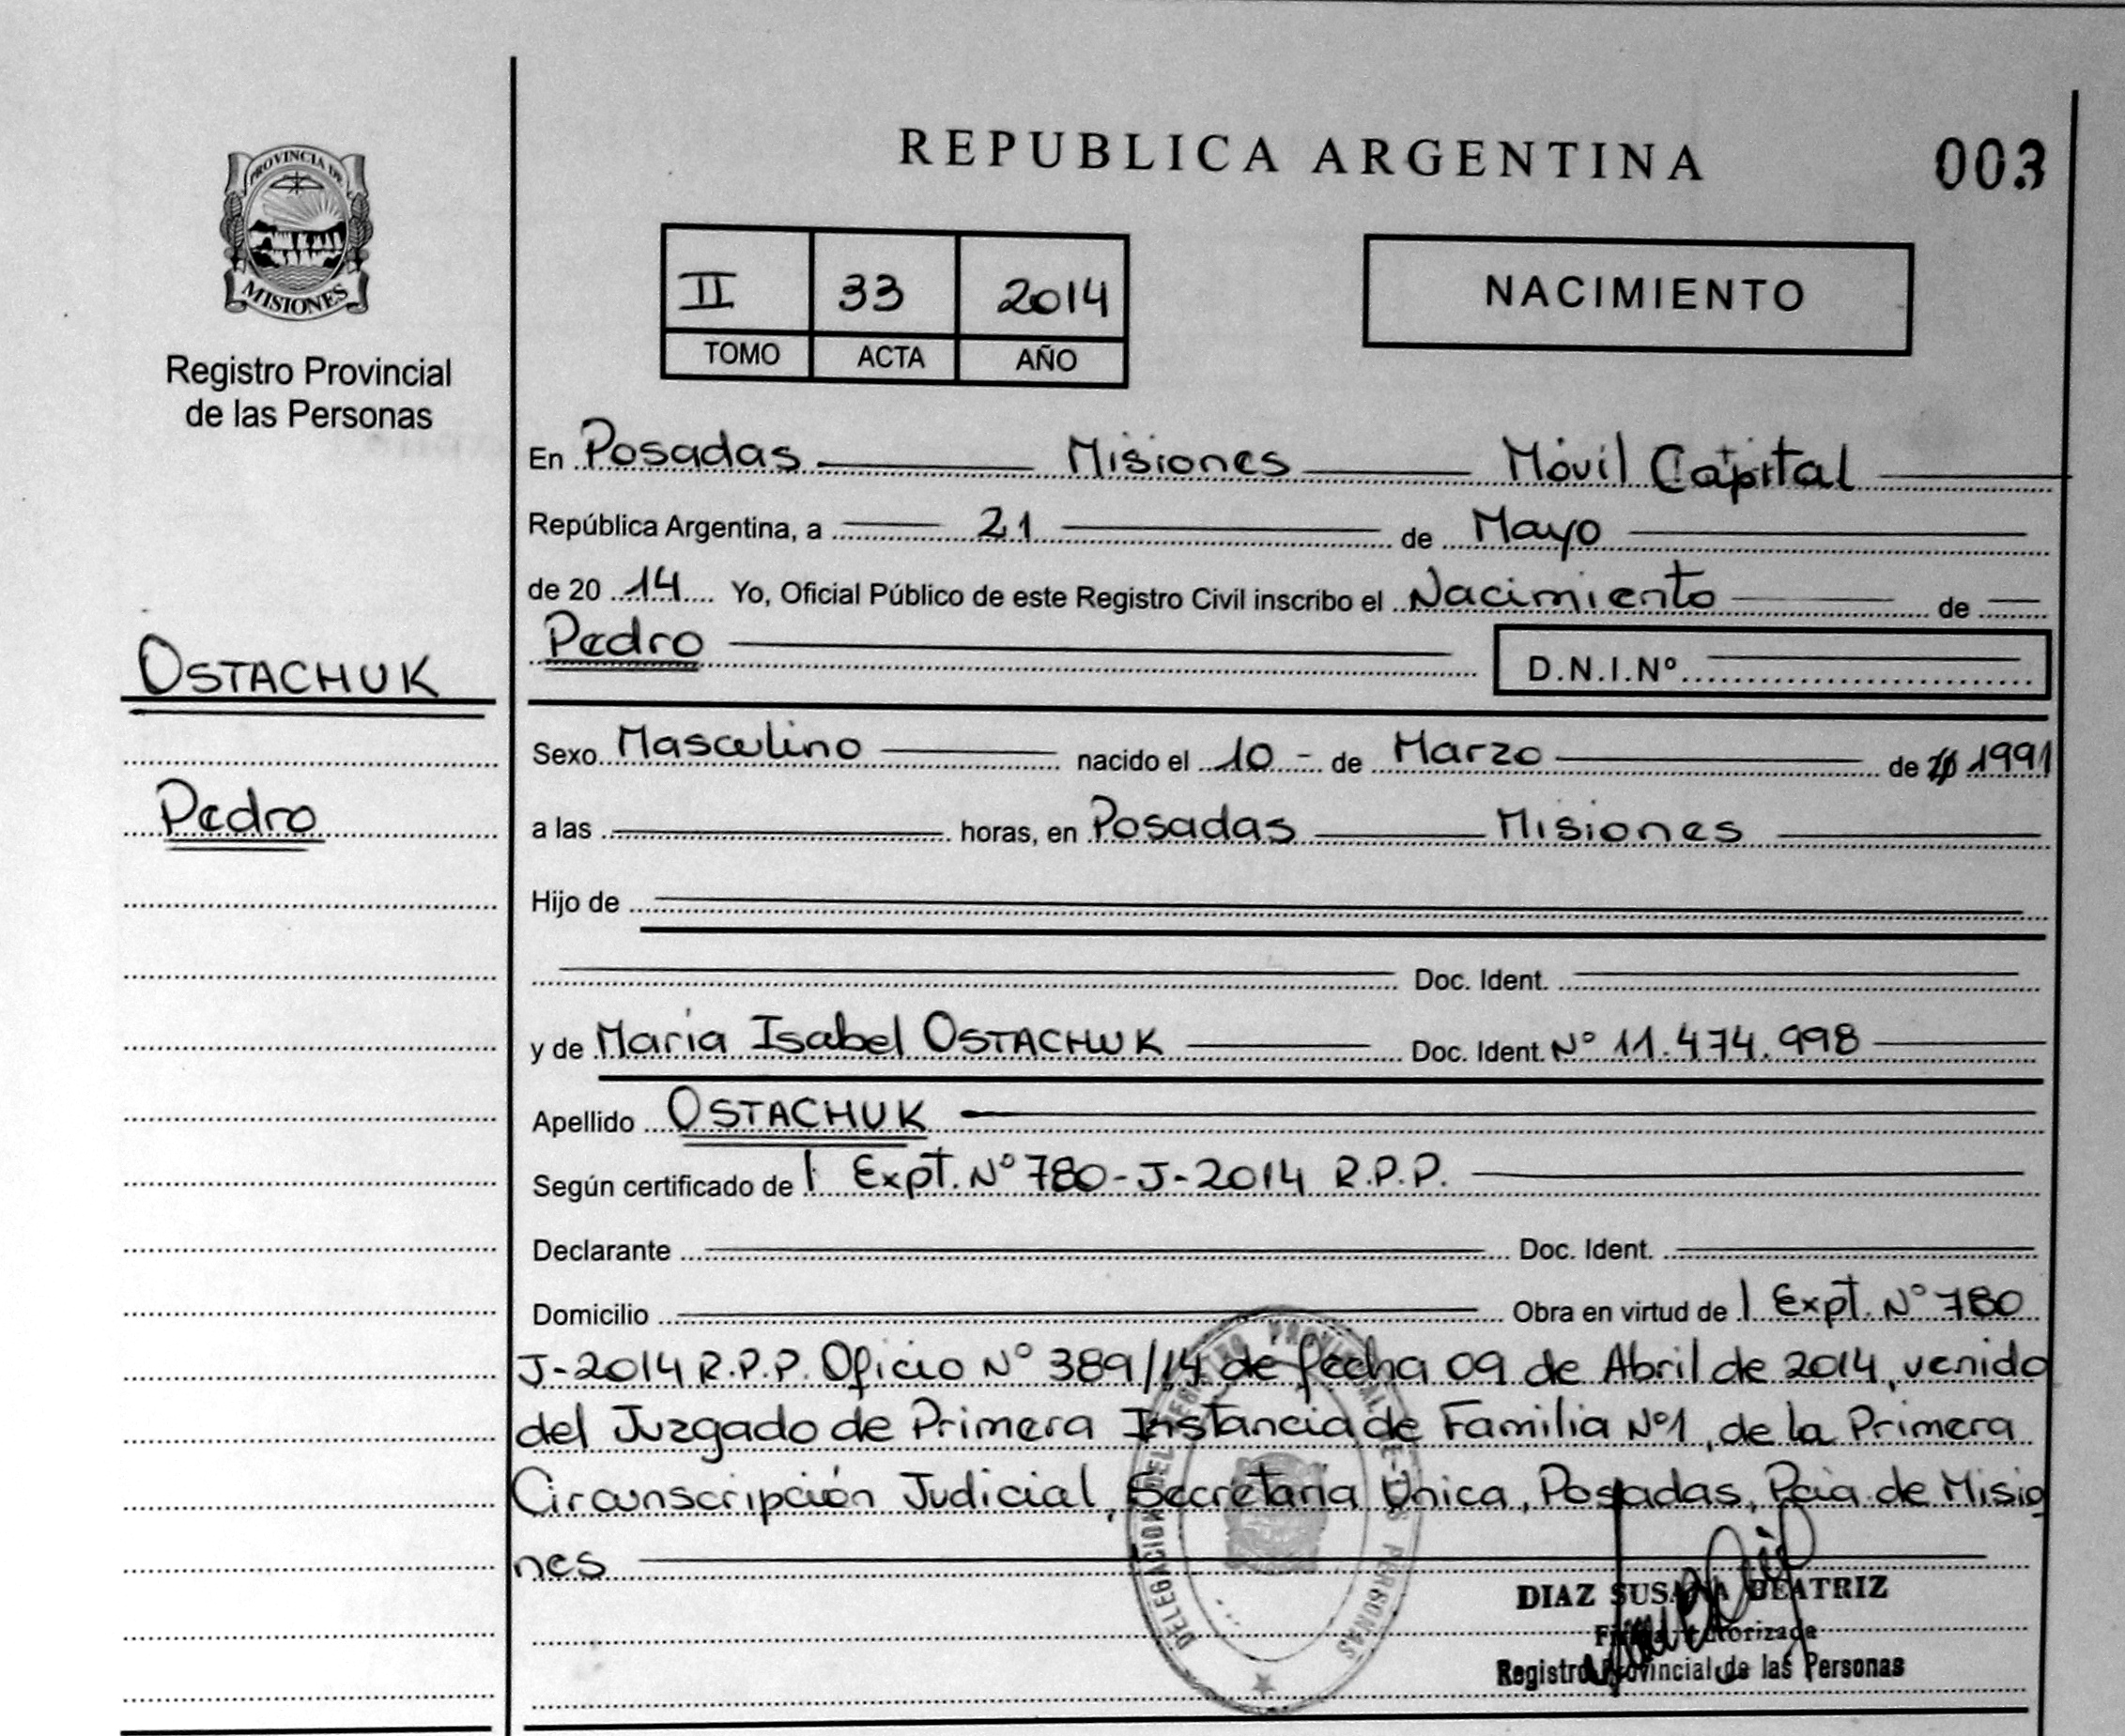 PROVINCIA DE
MISIONES
Registro Provincial
de las Personas
OSTACHUK
Pedro
REPUBLICA ARGENTINA
003
II 33 2014
TOMO ACTA AÑO
NACIMIENTO
En Posadas Misiones Móvil Capital
República Argentina, a 21 de Mayo
de 20 14 Yo, Oficial Público de este Registro Civil inscribo el Nacimiento de
Pedro D.N.I.Nº
Sexo Masculino nacido el 10 - de Marzo de 1991
a las horas, en Posadas Misiones
Hijo de
Doc. Ident.
y de Maria Isabel OSTACHUK Doc. Ident. Nº 11.474.998
Apellido OSTACHUK
Según certificado de Expt. Nº 780-J-2014 R.P.P.
Declarante Doc. Ident.
Domicilio Obra en virtud de Expt. Nº 780
J-2014 R.P.P. Oficio Nº 389/14 de fecha 09 de Abril de 2014, venido
del Juzgado de Primera Instancia de Familia Nº1, de la Primera
Circunscripción Judicial, Secretaria Unica, Posadas, Pcia de Misio
nes
DIAZ SUSANA BEATRIZ
Firma Autorizada
Registro Provincial de las Personas
DELEGACION DEL REGISTRO PROVINCIAL DE LAS PERSONAS